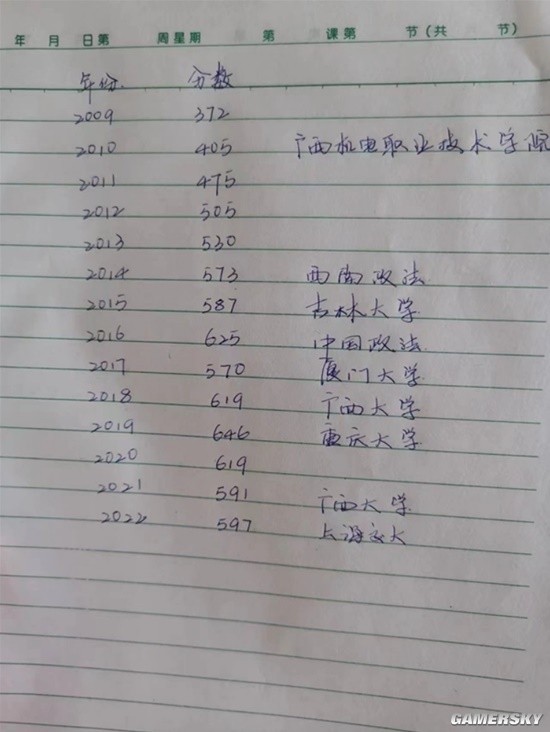 年 月 日第 周星期 第 课第 节(共 节)
年份 分数
2009 372
2010 405 广西机电职业技术学院
2011 475
2012 505
2013 530
2014 573 西南政法
2015 587 吉林大学
2016 625 中国政法
2017 570 厦门大学
2018 619 广西大学
2019 646 重庆大学
2020 619
2021 591 广西大学
2022 597 上海交大
GAMERSKY